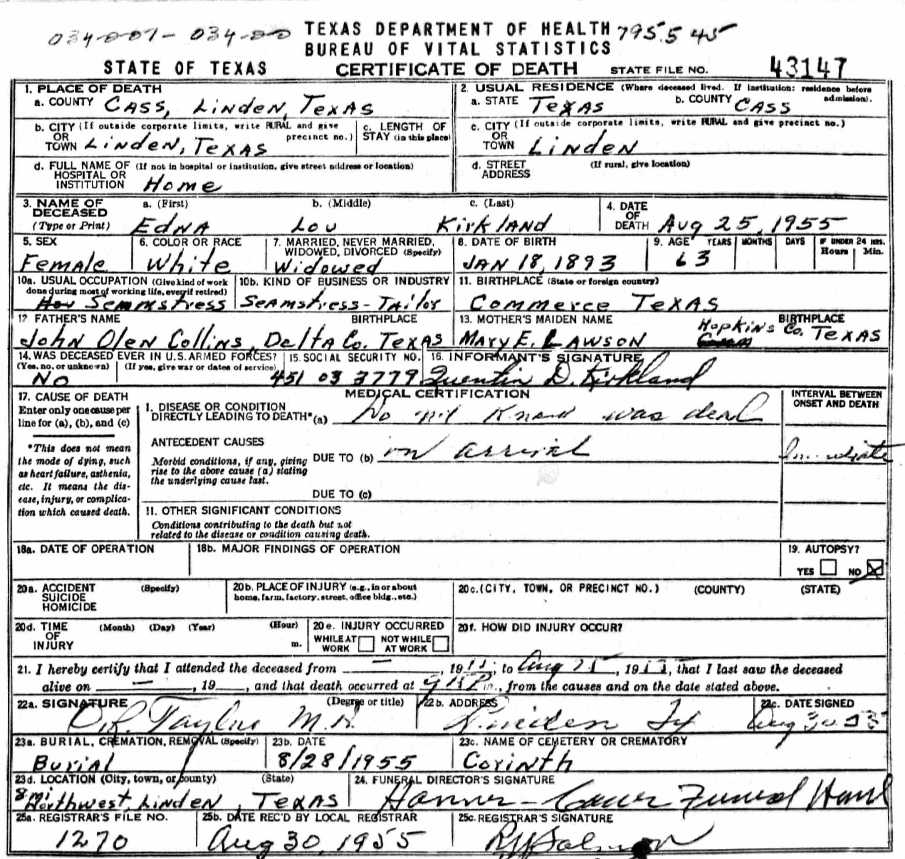 TEXAS DEPARTMENT OF HEALTH 795.5 45
BUREAU OF VITAL STATISTICS
STATE OF TEXAS CERTIFICATE OF DEATH STATE FILE NO. 43147
1. PLACE OF DEATH
a. COUNTY Cass, Linden, Texas
2. USUAL RESIDENCE (Where deceased lived. If institution: residence before admission).
a. STATE Texas b. COUNTY Cass
b. CITY (If outside corporate limits, write RURAL and give precinct no.)
OR
TOWN Linden, Texas
c. LENGTH OF
STAY (in this place)
c. CITY (If outside corporate limits, write RURAL and give precinct no.)
OR
TOWN Linden
d. FULL NAME OF (If not in hospital or institution, give street address or location)
HOSPITAL OR
INSTITUTION Home
d. STREET (If rural, give location)
ADDRESS
3. NAME OF a. (First) b. (Middle) c. (Last)
DECEASED
(Type or Print) Edna Lou Kirkland
4. DATE
OF
DEATH Aug 25, 1955
5. SEX
Female
6. COLOR OR RACE
White
7. MARRIED, NEVER MARRIED,
WIDOWED, DIVORCED (Specify)
Widowed
8. DATE OF BIRTH
JAN 18, 1893
9. AGE YEARS MONTHS DAYS IF UNDER 24 HRS.
Hours Min.
63
10a. USUAL OCCUPATION (Give kind of work
done during most of working life, even if retired)
Semmstress
10b. KIND OF BUSINESS OR INDUSTRY
Seamstress - Tailor
11. BIRTHPLACE (State or foreign country)
Commerce Texas
12 FATHER'S NAME BIRTHPLACE
John Olen Collins, Delta Co. Texas
13. MOTHER'S MAIDEN NAME BIRTHPLACE
Mary E. Lawson Hopkins Co. Texas
14. WAS DECEASED EVER IN U.S. ARMED FORCES?
(Yes, no, or unknown) (If yes, give war or dates of service)
No
15. SOCIAL SECURITY NO.
451 03 3779
16. INFORMANT'S SIGNATURE
Quentin D. Kirkland
17. CAUSE OF DEATH
Enter only one cause per
line for (a), (b), and (c)
*This does not mean
the mode of dying, such
as heart failure, asthenia,
etc. It means the dis-
ease, injury, or complica-
tion which caused death.
MEDICAL CERTIFICATION
I. DISEASE OR CONDITION
DIRECTLY LEADING TO DEATH* (a) Do not Know was dead
ANTECEDENT CAUSES
Morbid conditions, if any, giving
rise to the above cause (a) stating
the underlying cause last.
DUE TO (b) on arrival
DUE TO (c)
II. OTHER SIGNIFICANT CONDITIONS
Conditions contributing to the death but not
related to the disease or condition causing death.
INTERVAL BETWEEN
ONSET AND DEATH
Immediate
18a. DATE OF OPERATION
18b. MAJOR FINDINGS OF OPERATION
19. AUTOPSY?
YES NO
20a. ACCIDENT (Specify)
SUICIDE
HOMICIDE
20b. PLACE OF INJURY (e.g., in or about
home, farm, factory, street, office bldg., etc.)
20c. (CITY, TOWN, OR PRECINCT NO.) (COUNTY) (STATE)
20d. TIME (Month) (Day) (Year) (Hour)
OF
INJURY m.
20e. INJURY OCCURRED
WHILE AT WORK NOT WHILE AT WORK
20f. HOW DID INJURY OCCUR?
21. I hereby certify that I attended the deceased from —, 19 to Aug 25, 1955, that I last saw the deceased
alive on —, 19 , and that death occurred at m., from the causes and on the date stated above.
22a. SIGNATURE (Degree or title)
Taylor M.D.
22b. ADDRESS
Linden Tx
22c. DATE SIGNED
Aug 30 55
23a. BURIAL, CREMATION, REMOVAL (Specify)
Burial
23b. DATE
8/28/1955
23c. NAME OF CEMETERY OR CREMATORY
Corinth
23d. LOCATION (City, town, or county) (State)
8 mi Northwest, Linden, Texas
24. FUNERAL DIRECTOR'S SIGNATURE
Hanner - Funeral Home
25a. REGISTRAR'S FILE NO.
1270
25b. DATE REC'D BY LOCAL REGISTRAR
Aug 30, 1955
25c. REGISTRAR'S SIGNATURE
Salmon